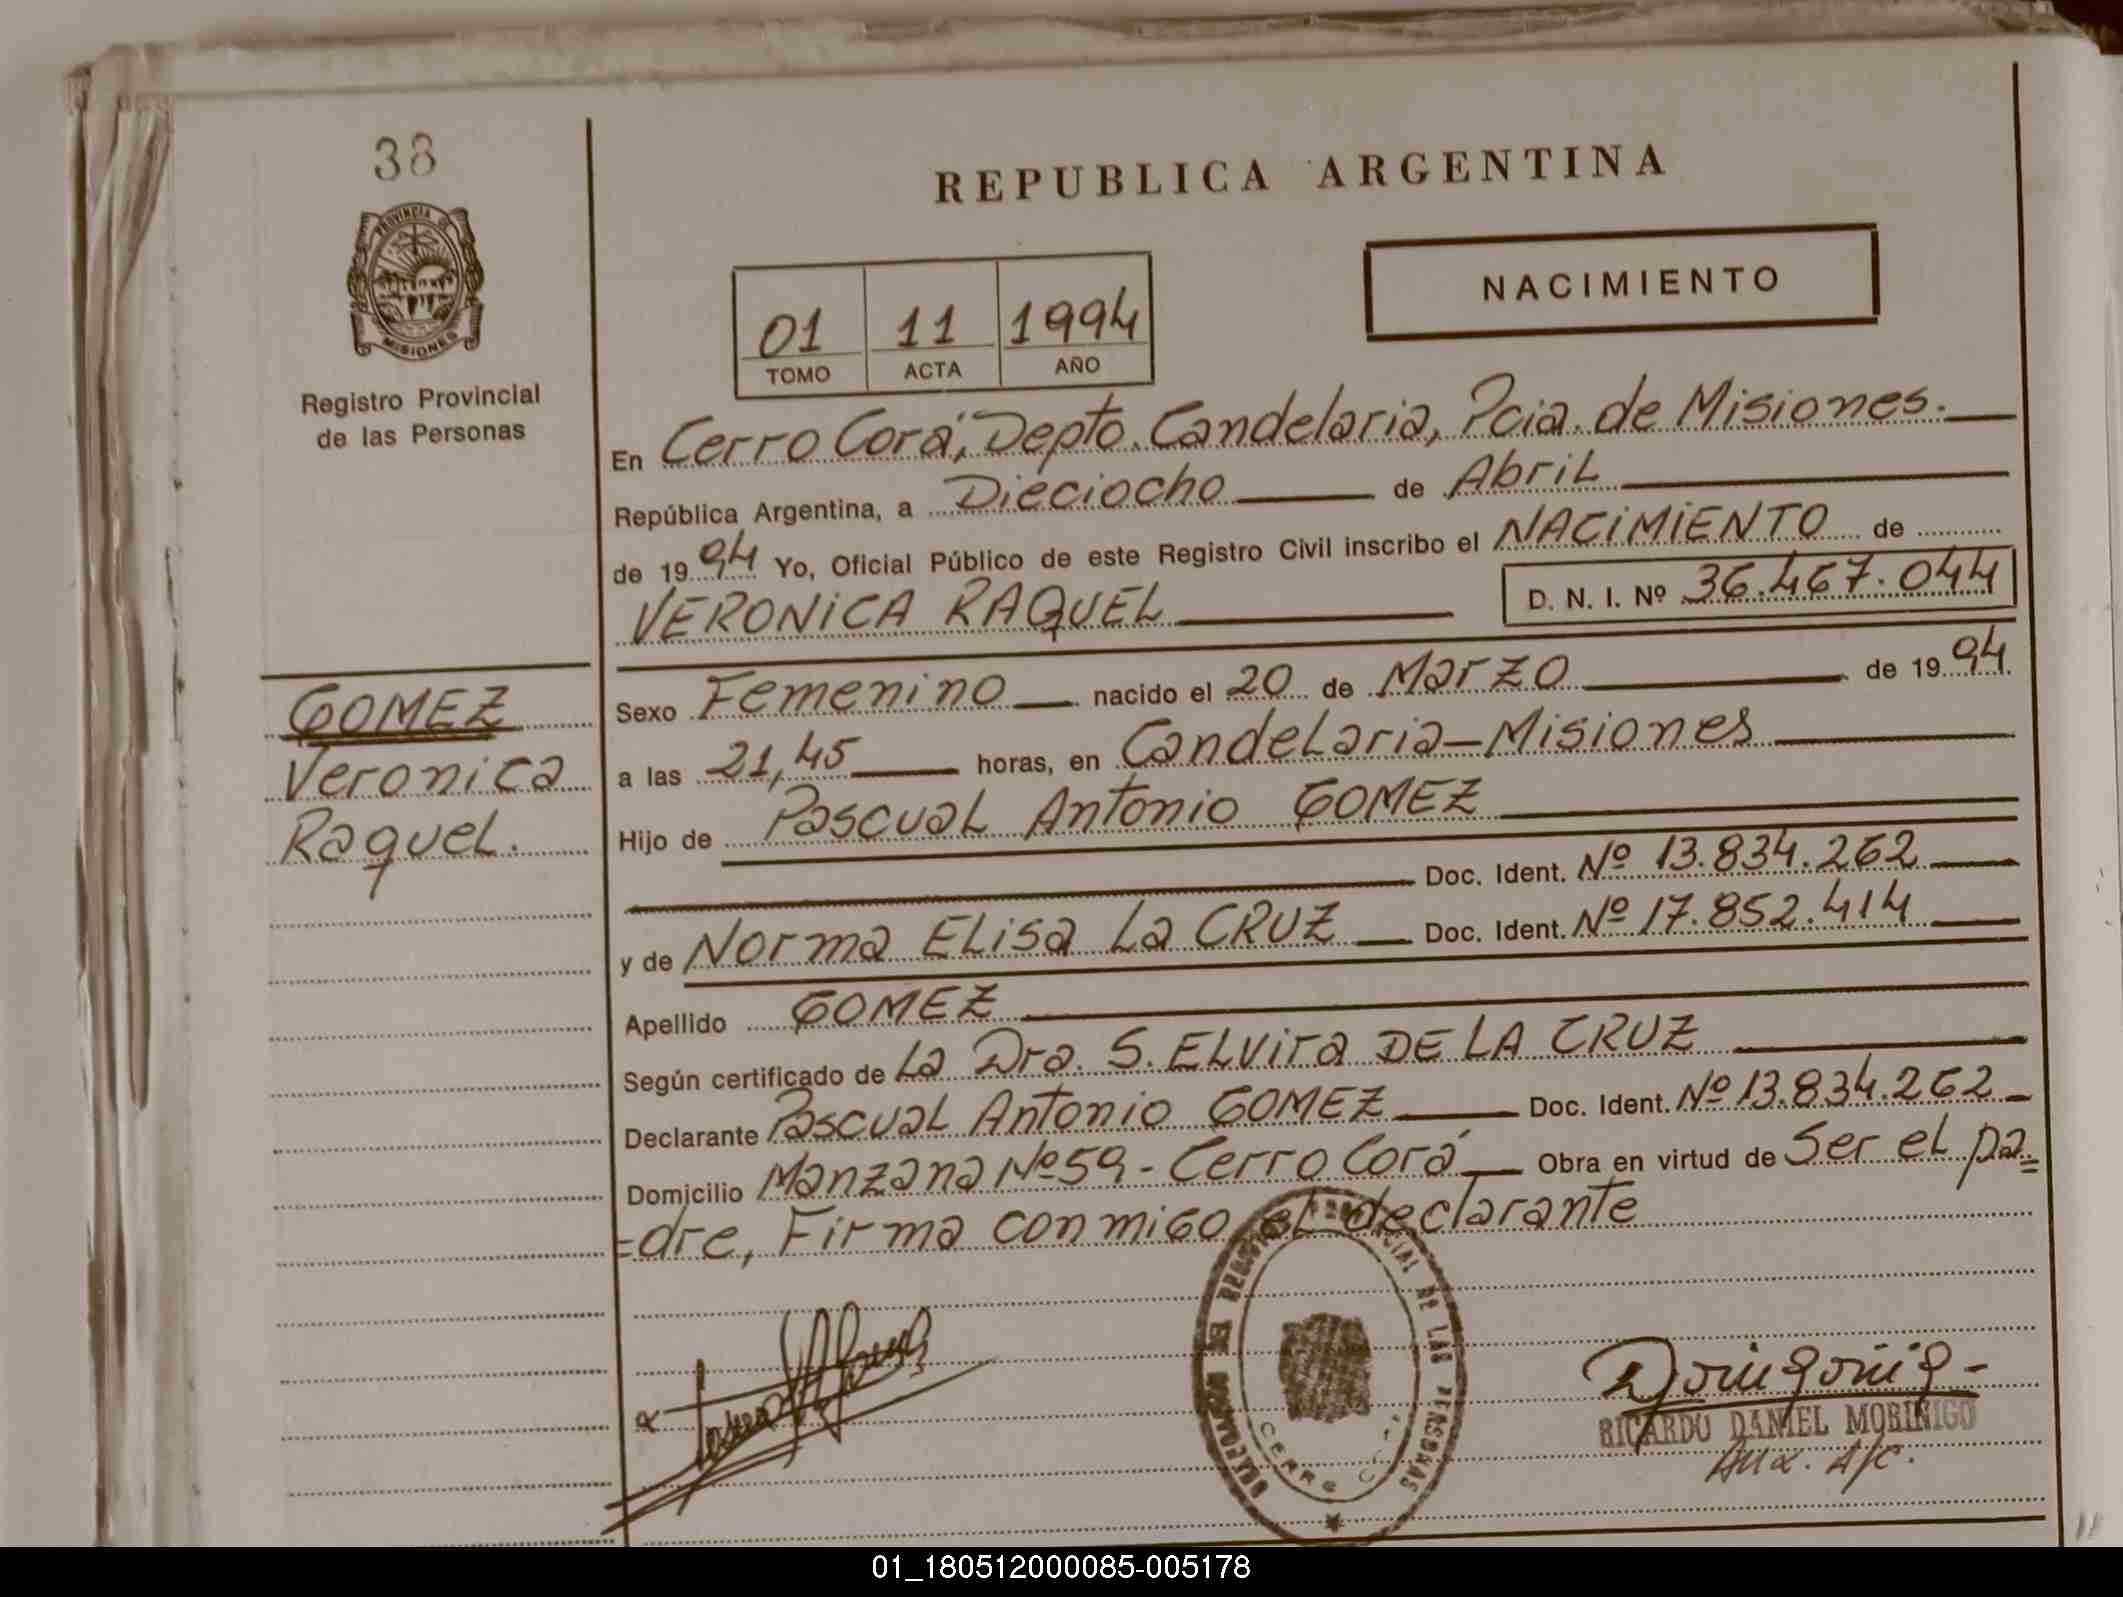 38
REPUBLICA ARGENTINA
PROVINCIA DE
MISIONES
NACIMIENTO
01 11 1994
TOMO ACTA AÑO
Registro Provincial
de las Personas
En Cerro Corá, Depto. Candelaria, Pcia. de Misiones.
República Argentina, a Dieciocho de Abril
de 1994 Yo, Oficial Público de este Registro Civil inscribo el NACIMIENTO de
VERONICA RAQUEL D. N. I. Nº 36.467.044
GOMEZ
Veronica
Raquel.
Sexo Femenino nacido el 20 de Marzo de 1994.
a las 21,45 horas, en Candelaria-Misiones
Hijo de Pascual Antonio GOMEZ
Doc. Ident. Nº 13.834.262
y de Norma Elisa La CRUZ Doc. Ident. Nº 17.852.414
Apellido GOMEZ
Según certificado de La Dra. S. ELVira DE LA CRUZ
Declarante Pascual Antonio GOMEZ Doc. Ident. Nº 13.834.262
Domicilio Manzana Nº 59 - Cerro Corá Obra en virtud de Ser el pa=
=dre, Firma conmigo el declarante
REGISTRO PROVINCIAL DE LAS PERSONAS
CERRO
RICARDO DANIEL MORINIGO
Aux. A/C.
01_180512000085-005178